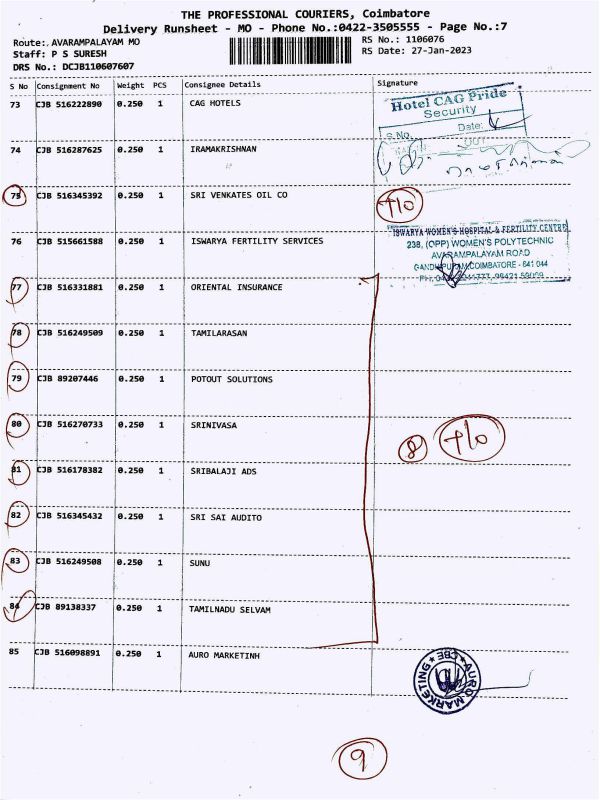 THE PROFESSIONAL COURIERS, Coimbatore
Delivery Runsheet - MO - Phone No.:0422-3505555 - Page No.:7
Route:.AVARAMPALAYAM MO
RS No.: 1106076
Staff: P S SURESH
RS Date: 27-Jan-2023
DRS No.: DCJB110607607
S No Consignment No Weight PCS Consignee Details Signature
73 CJB 516222890 0.250 1 CAG HOTELS
Hotel CAG Pride
Security
S.No. Date:
OUT
74 CJB 516287625 0.250 1 IRAMAKRISHNAN
75 CJB 516345392 0.250 1 SRI VENKATES OIL CO
76 CJB 515661588 0.250 1 ISWARYA FERTILITY SERVICES
ISWARYA WOMEN'S HOSPITAL & FERTILITY CENTRE
238, (OPP) WOMEN'S POLYTECHNIC
AVARAMPALAYAM ROAD
GANDHIPURAM, COIMBATORE - 641 044
77 CJB 516331881 0.250 1 ORIENTAL INSURANCE
78 CJB 516249509 0.250 1 TAMILARASAN
79 CJB 89207446 0.250 1 POTOUT SOLUTIONS
80 CJB 516270733 0.250 1 SRINIVASA
8
81 CJB 516178382 0.250 1 SRIBALAJI ADS
82 CJB 516345432 0.250 1 SRI SAI AUDITO
83 CJB 516249508 0.250 1 SUNU
84 CJB 89138337 0.250 1 TAMILNADU SELVAM
85 CJB 516098891 0.250 1 AURO MARKETINH
AURO MARKETING
CBE
9